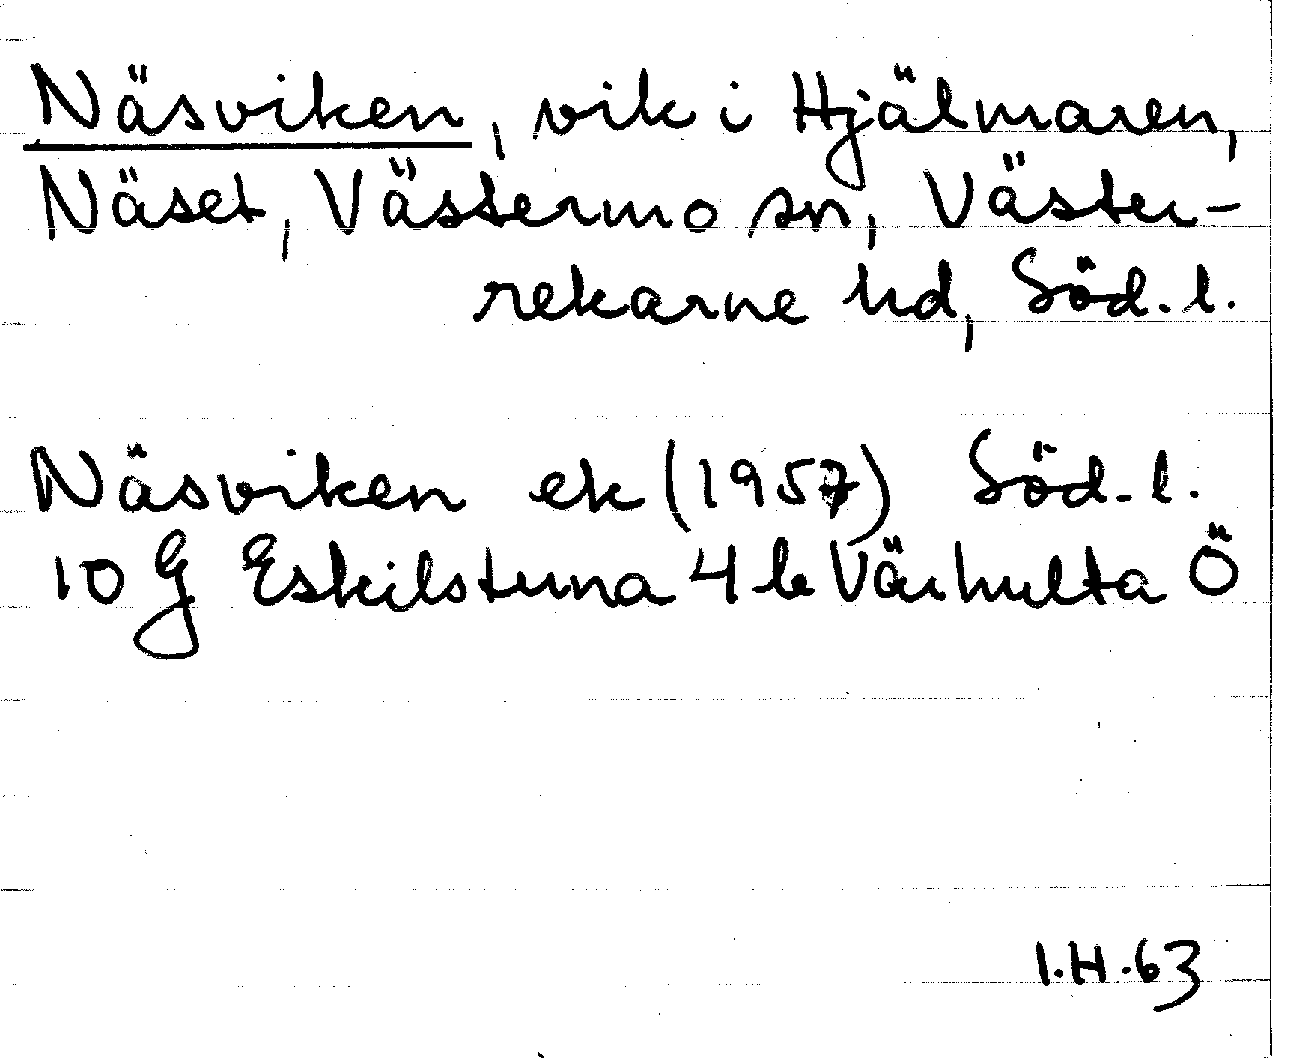 Näsviken, vik i Hjälmaren,
Näset, Västermo sn, Väster-
rekarne hd, Söd. l.
Näsviken ek (1957) Söd. l.
10 G Eskilstuna 4 b Värhulta Ö
I.H.63